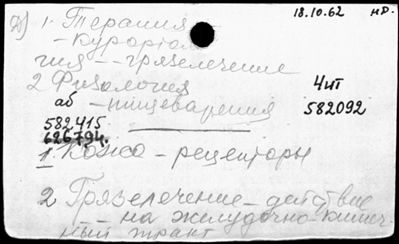 Д) 1. Терапия 18.10.62 нр.
- курортоло
гия - - грязелечение
2 Физиология Чит
аб - пищеварения 582092
582415
626794.
1. Кожа - рецепторы
2 Грязелечение - действие
- - на желудочно-кишеч
ный тракт